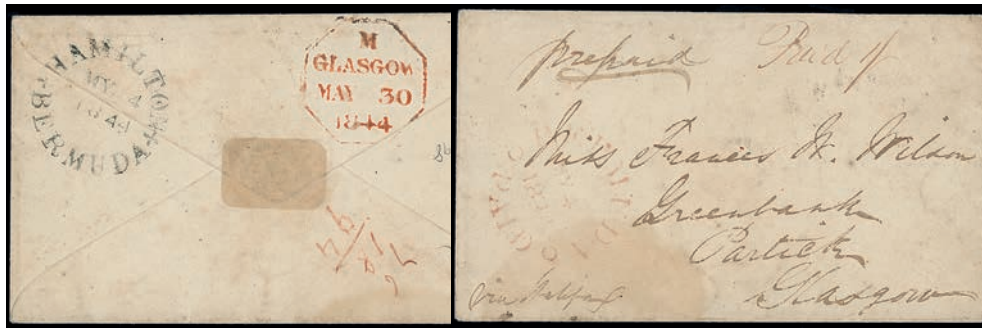 HAMILTON
MY 4
1844
BERMUDA
M
GLASGOW
MAY 30
1844
prepaid Paid 1/
Miss Frances W. Wilson
Greenbank
Partick
Glasgow
via Halifax